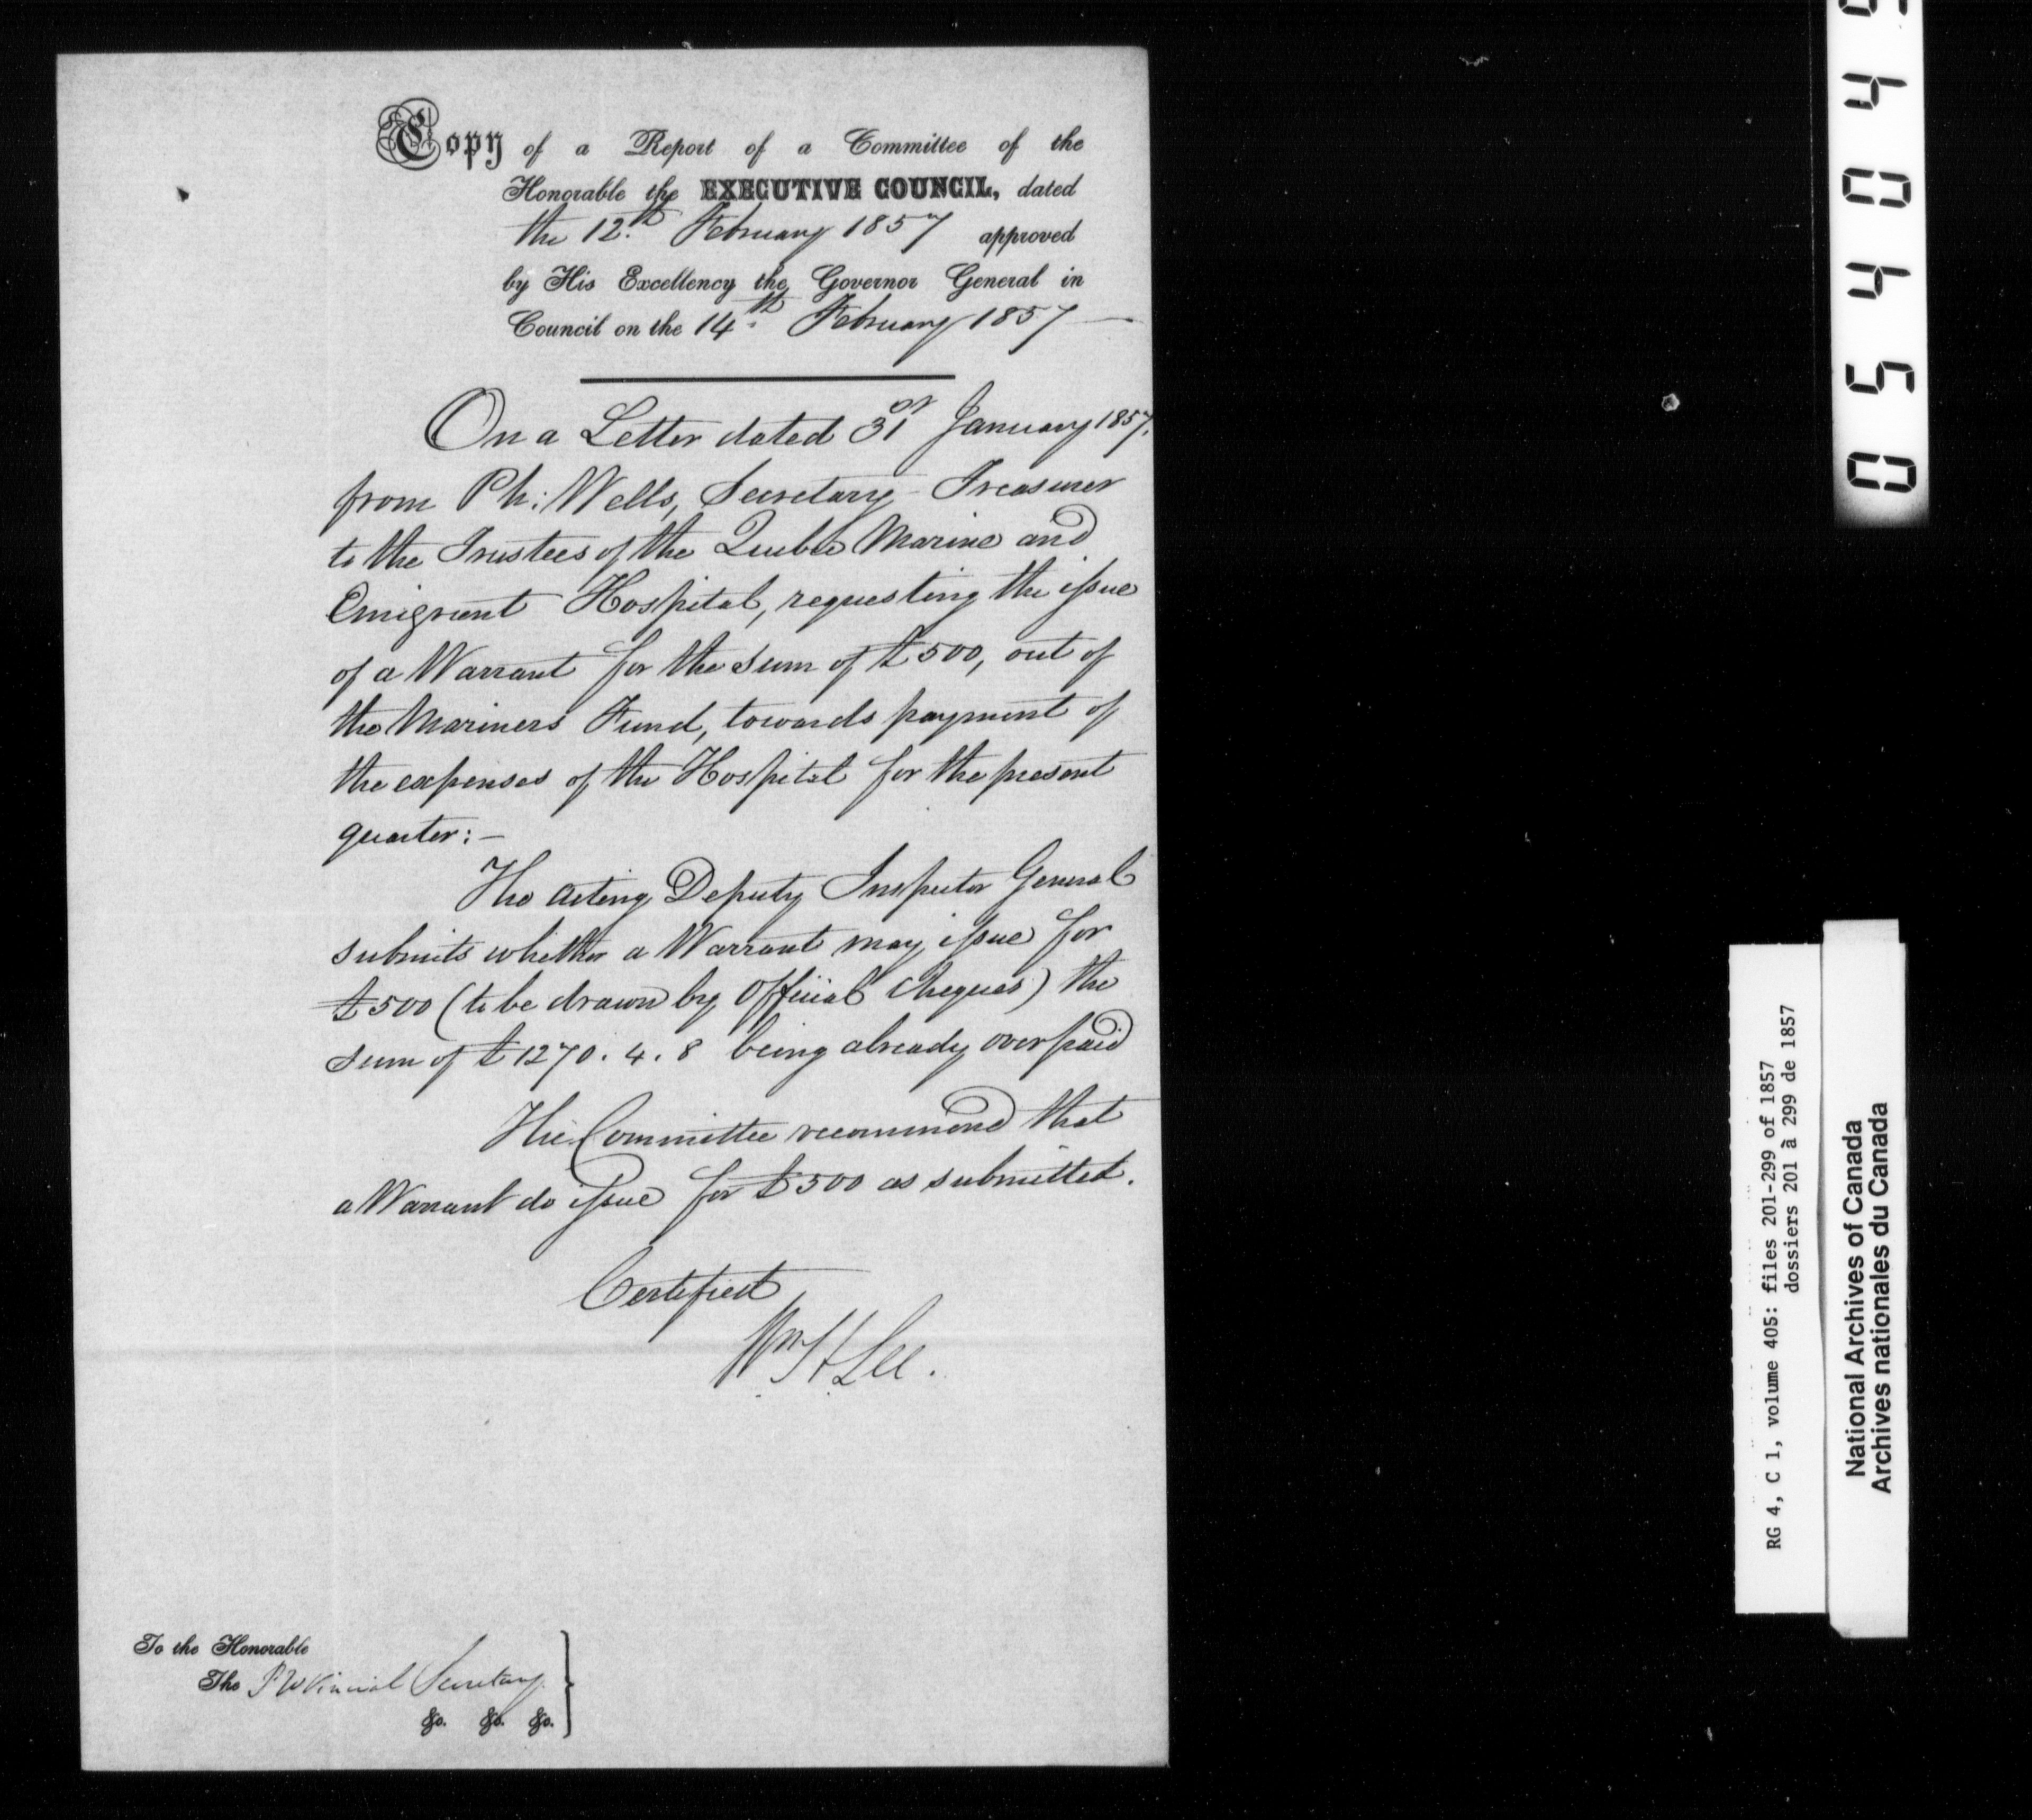 Copy of a Report of a Committee of the
Honorable the EXECUTIVE COUNCIL, dated
the 12th February 1857 approved
by His Excellency the Governor General in
Council on the 14th February 1857 —
On a Letter dated 31st January 1857.
from Ph: Wells, Secretary-Treasurer
to the Trustees of the Quebec Marine and
Emigrant Hospital, requesting the issue
of a Warrant for the sum of £500, out of
the Mariners Fund, towards payment of
the expenses of the Hospital for the present
quarter:—
The Acting Deputy Inspector General
submits whether a Warrant may issue for
£500 (to be drawn by Official Cheques) the
sum of £1270.4.8 being already overpaid
The Committee recommend that
a Warrant do issue for £500 as submitted.
Certified
Wm H Lee.
To the Honorable
The Provincial Secretary
&c. &c. &c.
RG 4, C 1, volume 405: files 201-299 of 1857
dossiers 201 à 299 de 1857
National Archives of Canada
Archives nationales du Canada